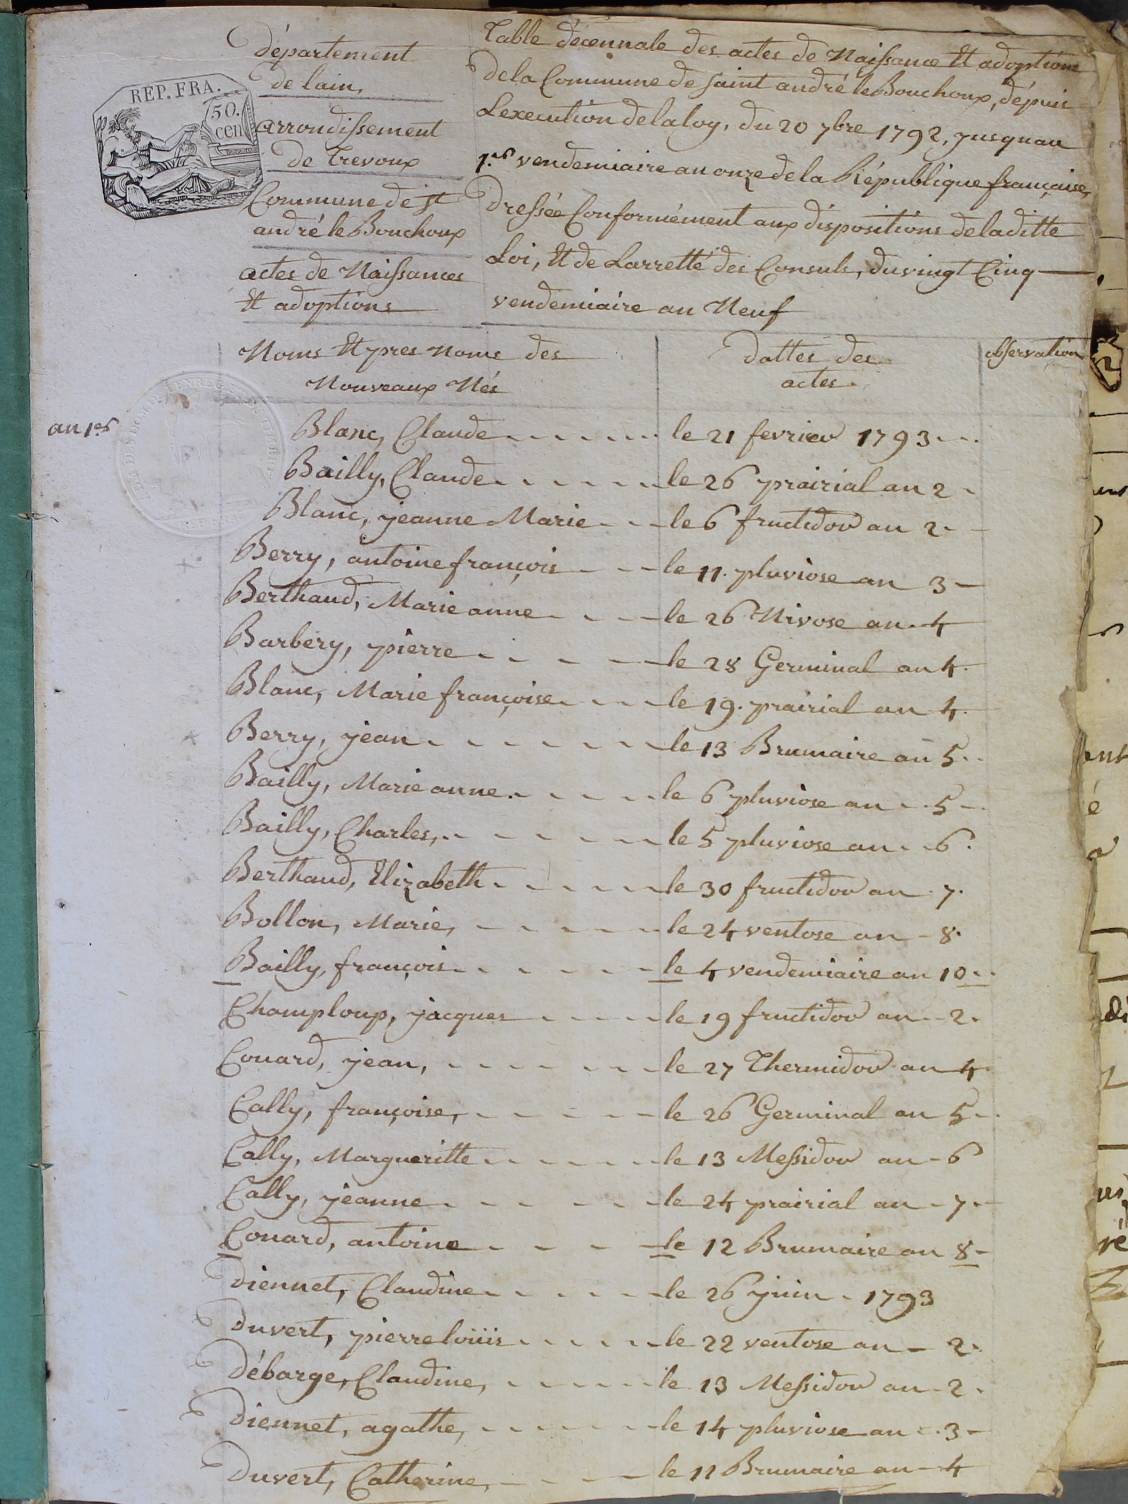 département
de lain,
REP. FRA.
50.
cen
arrondissement
de Trevoux
Commune de st
andré le Bouchoux
actes de Naissances
Et adoptions
Table décennale des actes de Naissance Et adoptions
de la Commune de saint andré le Bouchoux, dépuis
Lexecution de la loy, du 20 7bre 1792, jusquau
1.er vendemiaire an onze de la République française,
Dressée Conformément aux dispositions de la ditte
Loi, Et de Larretté des Consuls, du vingt Cinq
vendemiaire an Neuf
Noms Et pres noms des
Nouveaux Nés
Dattes des
actes.
observation
an 1er
Blanc, Claude le 21 fevrier 1793
Bailly, Claude le 26 prairial an 2
Blanc, jeanne Marie le 6 fructidor an 2
Berry, antoine françois le 11 pluviose an 3
Berthaud, Marie anne le 26 Nivose an 4
Barbery, pierre le 28 Germinal an 4
Blanc, Marie françoise le 19 prairial an 4
Berry, jean le 13 Brumaire an 5
Bailly, Marie anne le 6 pluviose an 5
Bailly, Charles, le 5 pluviose an 6
Berthaud, Elizabeth le 30 fructidor an 7
Bollon, Marie, le 24 ventose an 8
Bailly, françois le 4 vendemiaire an 10
Champloup, jacques le 19 fructidor an 2
Couard, jean, le 27 Thermidor an 4
Cally, françoise, le 26 Germinal an 5
Cally, Margueritte le 13 Messidor an 6
Cally, jeanne le 24 prairial an 7
Couard, antoine le 12 Brumaire an 8
diennet, Claudine le 26 juin 1793
Duvert, pierre loüis le 22 ventose an 2
Débarge, Claudine, le 13 Messidor an 2
Diennet, agathe, le 14 pluviose an 3
Duvert, Catherine, le 11 Brumaire an 4